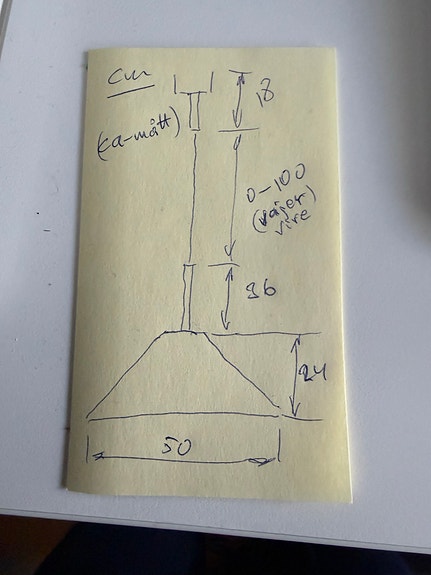 cm
18
(ca-mått)
0-100
(vajer)
vire
36
24
50